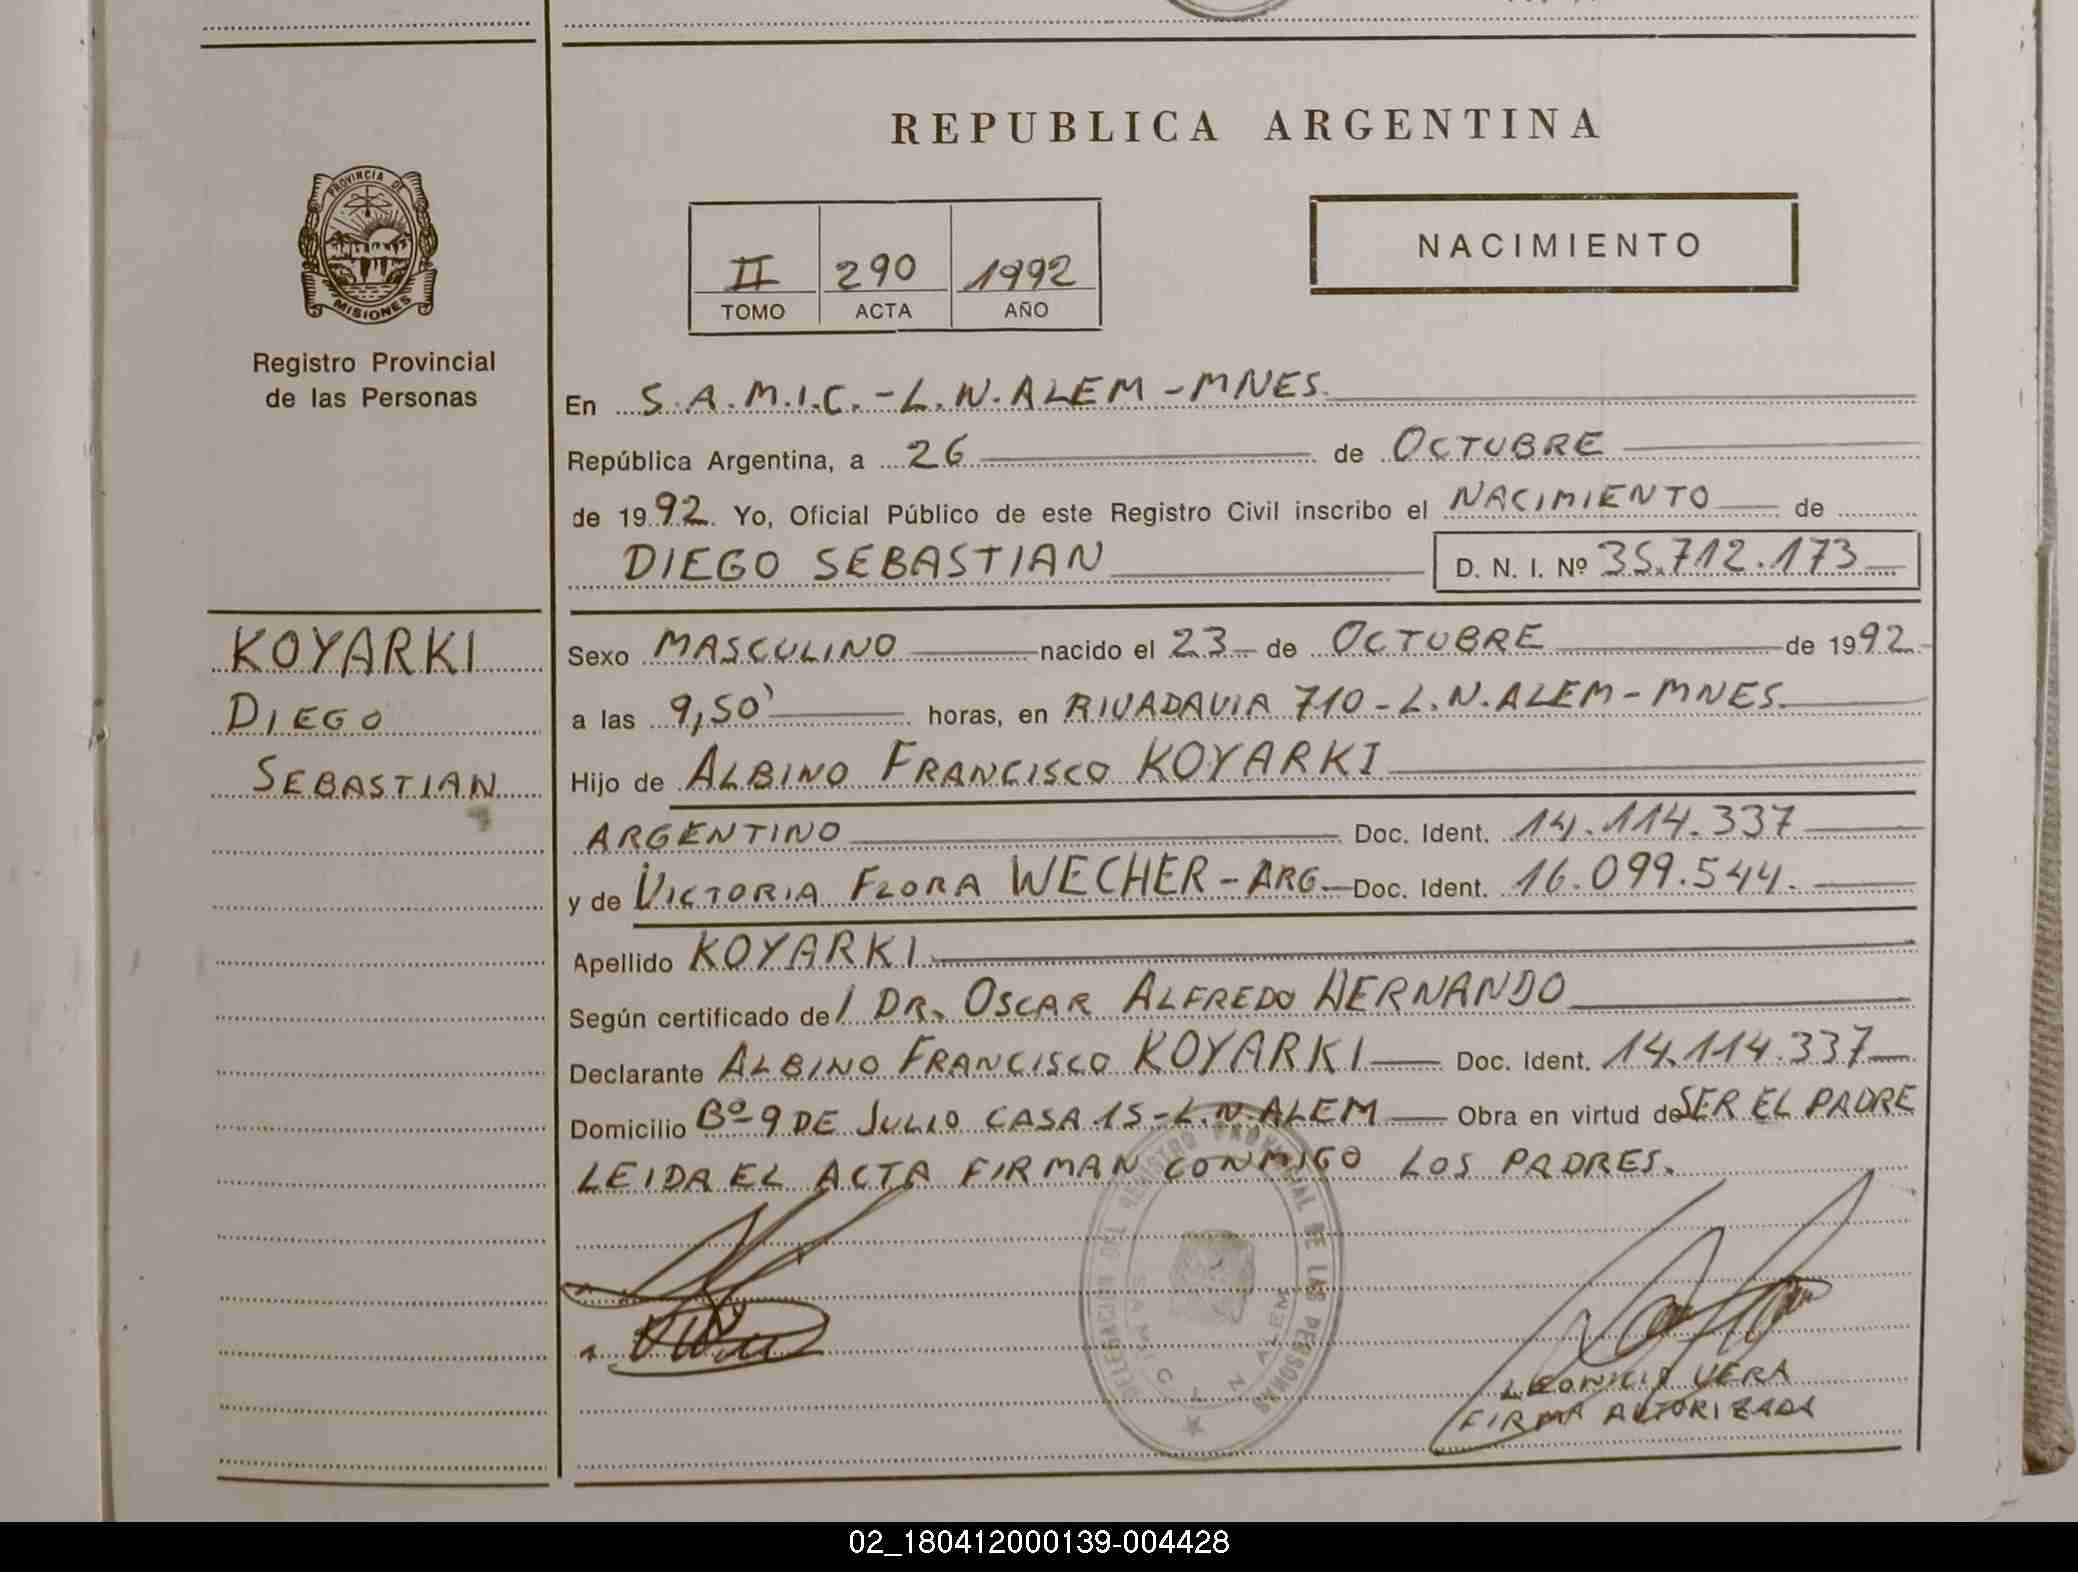 REPUBLICA ARGENTINA
PROVINCIA DE
MISIONES
Registro Provincial
de las Personas
II 290 1992
TOMO ACTA AÑO
NACIMIENTO
En S.A.M.I.C. - L.N. ALEM - MNES.
República Argentina, a 26 de OCTUBRE
de 1992. Yo, Oficial Público de este Registro Civil inscribo el NACIMIENTO de
DIEGO SEBASTIAN D. N. I. Nº 35.712.173
KOYARKI
DIEGO
SEBASTIAN
Sexo MASCULINO nacido el 23 de OCTUBRE de 1992.
a las 9,50' horas, en RIVADAVIA 710 - L.N. ALEM - MNES.
Hijo de ALBINO FRANCISCO KOYARKI
ARGENTINO Doc. Ident. 14.114.337
y de VICTORIA FLORA WECHER - ARG. Doc. Ident. 16.099.544.
Apellido KOYARKI
Según certificado de/ DR. OSCAR ALFREDO HERNANDO
Declarante ALBINO FRANCISCO KOYARKI Doc. Ident. 14.114.337
Domicilio Bº 9 DE JULIO CASA 15 - L.N. ALEM Obra en virtud de SER EL PADRE
LEIDA EL ACTA FIRMAN CONMIGO LOS PADRES.
DELEGACION DEL REGISTRO PROVINCIAL DE LAS PERSONAS
SAMIC L N ALEM
LEONICIO VERA
FIRMA AUTORIZADA
02_180412000139-004428